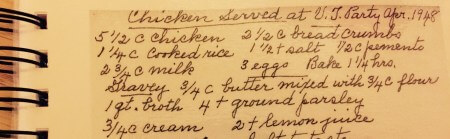 Chicken Served at V.T. Party Apr. 1948
5 1/2 c chicken 2 1/2 c bread crumbs
1 1/4 c cooked rice 1 1/2 t salt 1/2 c pements
2 3/4 c milk 3 eggs Bake 1 1/4 hrs.
Gravey 3/4 c butter mixed with 3/4 c flour
1 qt. broth 4 t ground parsley
3/4 c cream 2 t lemon juice
salt to taste